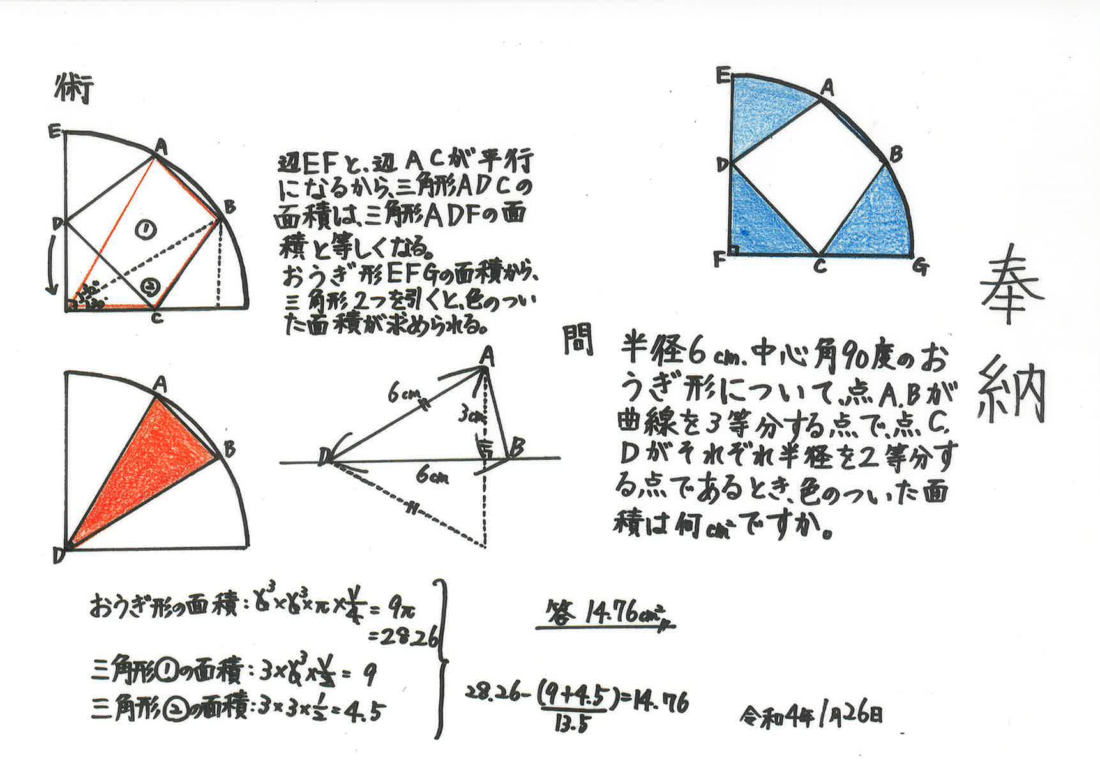 奉納
問
半径6cm、中心角90度のお
うぎ形について、点A,Bが
曲線を3等分する点で、点C,
Dがそれぞれ半径を2等分す
る点であるとき、色のついた面
積は何cm²ですか。
E
A
B
D
F
C
G
術
E
A
B
D
①
②
30°
C
辺EFと、辺ACが平行
になるから、三角形ADCの
面積は、三角形ADFの面
積と等しくなる。
おうぎ形EFGの面積から、
三角形2つを引くと、色のつい
た面積が求められる。
A
B
D
A
6cm
3cm
D
B
6cm
おうぎ形の面積:6³×6³×π×1/4=9π
=28.26
三角形①の面積:3×6³×1/2=9
三角形②の面積:3×3×1/2=4.5
答 14.76cm²
28.26-(9+4.5)=14.76
13.5
令和4年1月26日